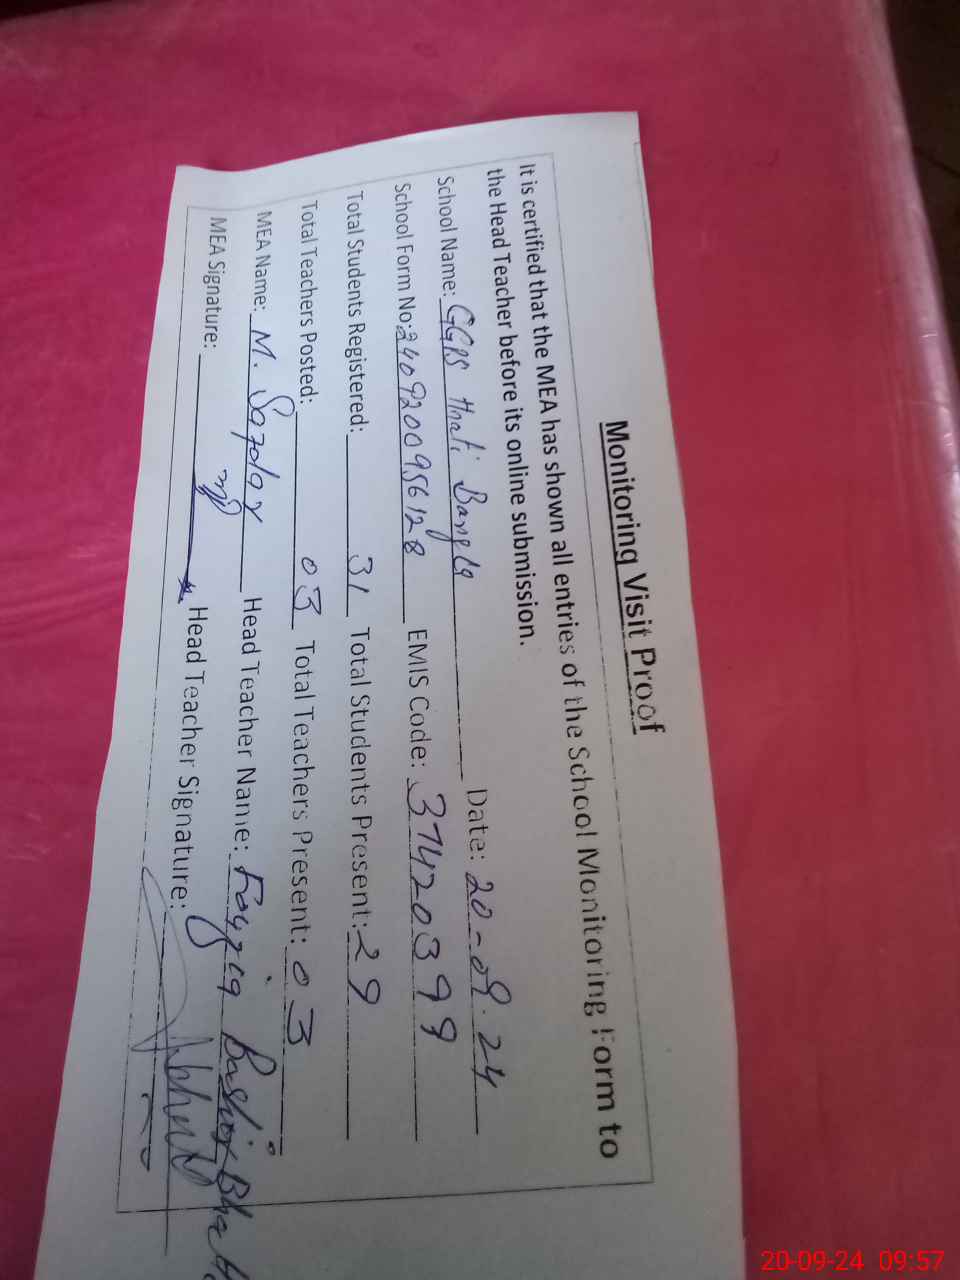 Monitoring Visit Proof
It is certified that the MEA has shown all entries of the School Monitoring Form to
the Head Teacher before its online submission.
School Name: GGPS Hnati Bangla Date: 20-09.24
School Form No: 2409200956128 EMIS Code: 37420399
Total Students Registered: 31 Total Students Present: 29
Total Teachers Posted: 03 Total Teachers Present: 03
MEA Name: M. Safdar Head Teacher Name: Fayzia Bashir Bhatti
MEA Signature: Head Teacher Signature:
20-09-24 09:57